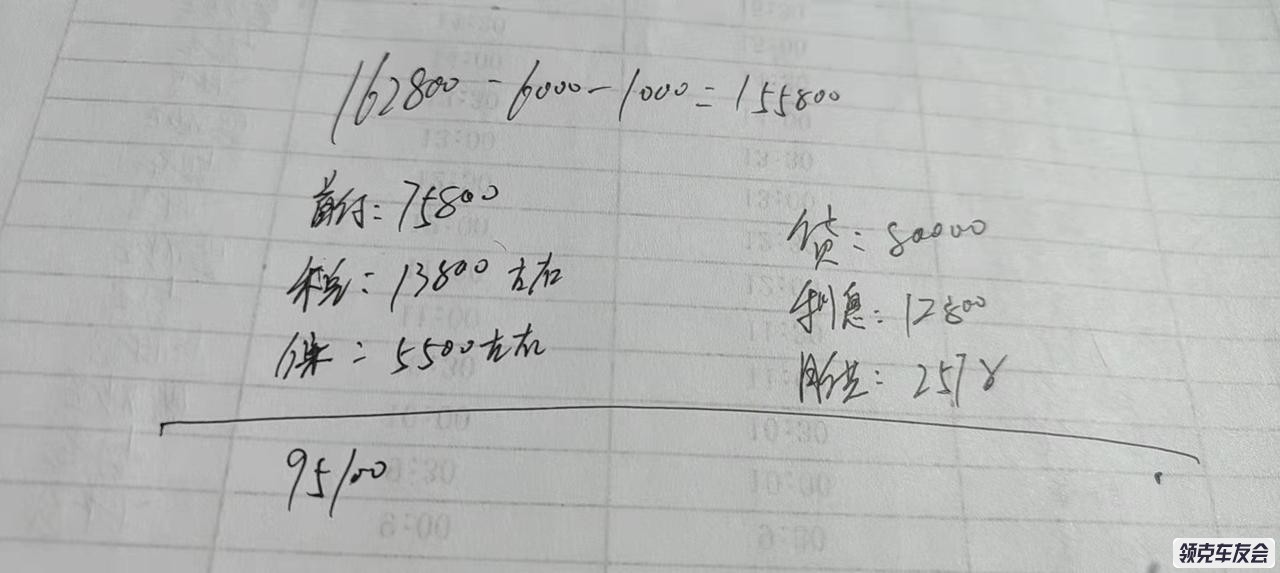 162800-6000-1000=155800
首付:75800
税:13800左右
保:5500左右
95100
贷:80000
利息:12800
月供:2578
领克车友会